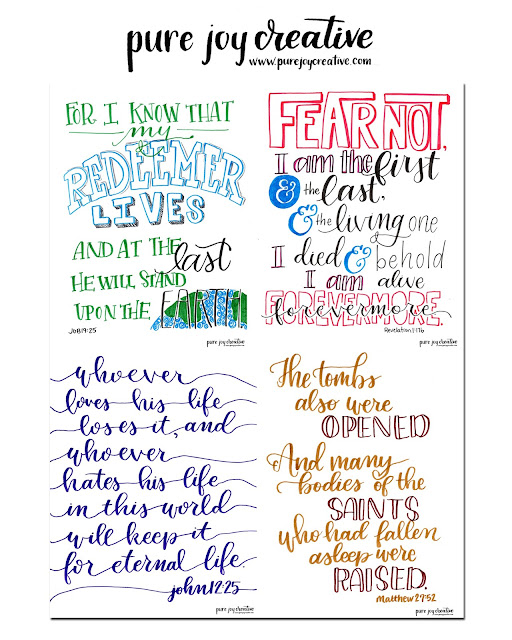 pure joy creative
www.purejoycreative.com
FOR I KNOW THAT
my
REDEEMER
LIVES
AND AT THE last
HE WILL STAND
UPON THE EARTH
JOB 19:25
pure joy creative
FEAR NOT,
I am the first
& the last,
& the living one
I died & behold
I am alive
FOREVERMORE.
forevermore
Revelation 1:17b
pure joy creative
whoever
loves his life
loses it, and
whoever
hates his life
in this world
will keep it
for eternal life.
john 12:25
pure joy creative
The tombs
also were
OPENED
And many
bodies of the
SAINTS
who had fallen
asleep were
RAISED.
Matthew 27:52
pure joy creative